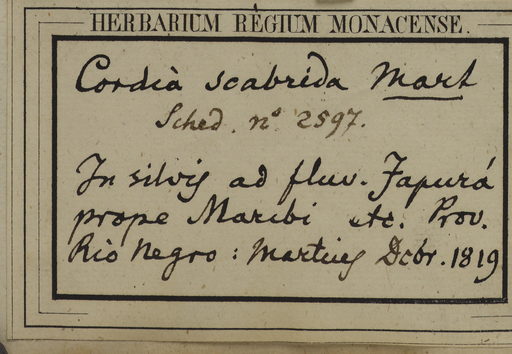 HERBARIUM REGIUM MONACENSE.
Cordia scabrida Mart
Sched. nº 2597.
In silvis ad fluv. Japurá
prope Maribi etc. Prov.
Rio Negro : Martius Dcbr. 1819